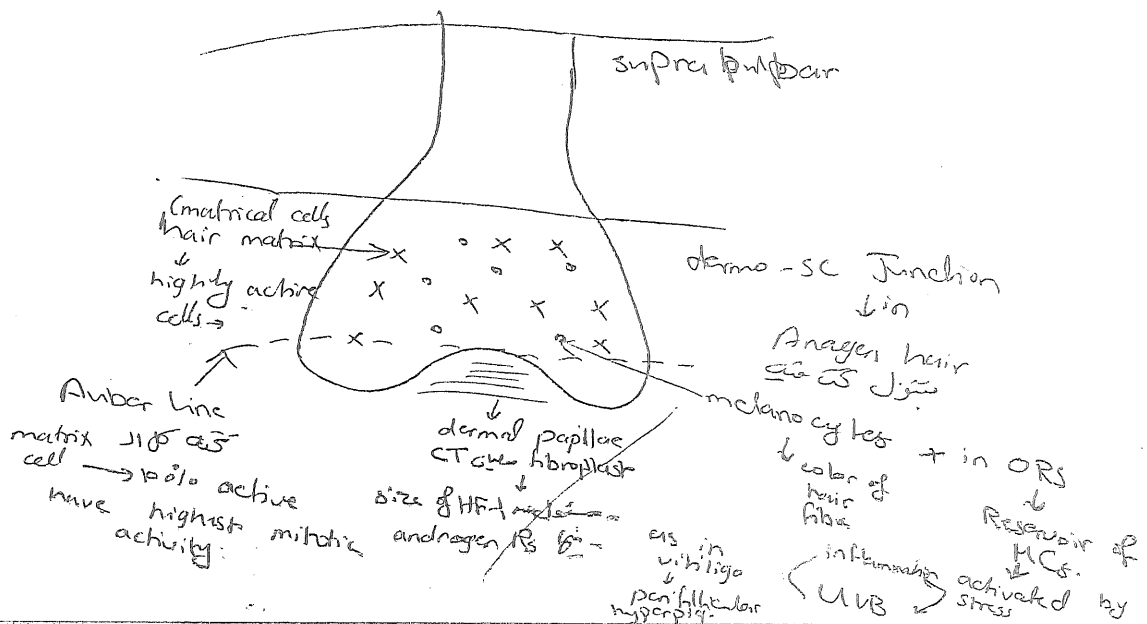 supra bulbar
(matrical cells
hair matrix
↓
highly active
cells →
dermo-SC Junction
↓ in
Anagen hair
تنزل تحت
Auber Line
matrix
cell → 100% active
have highest mitotic
activity.
dermal papillae
CT fibroplast
↓
size of HF
androgen Rs
melanocytes + in ORS
↓ color of
hair
fibre
↓
Reservoir of
MCs.
activated by
stress
inflammation
UVB
as in
vitiligo
↓
perifollicular
hyperpig.